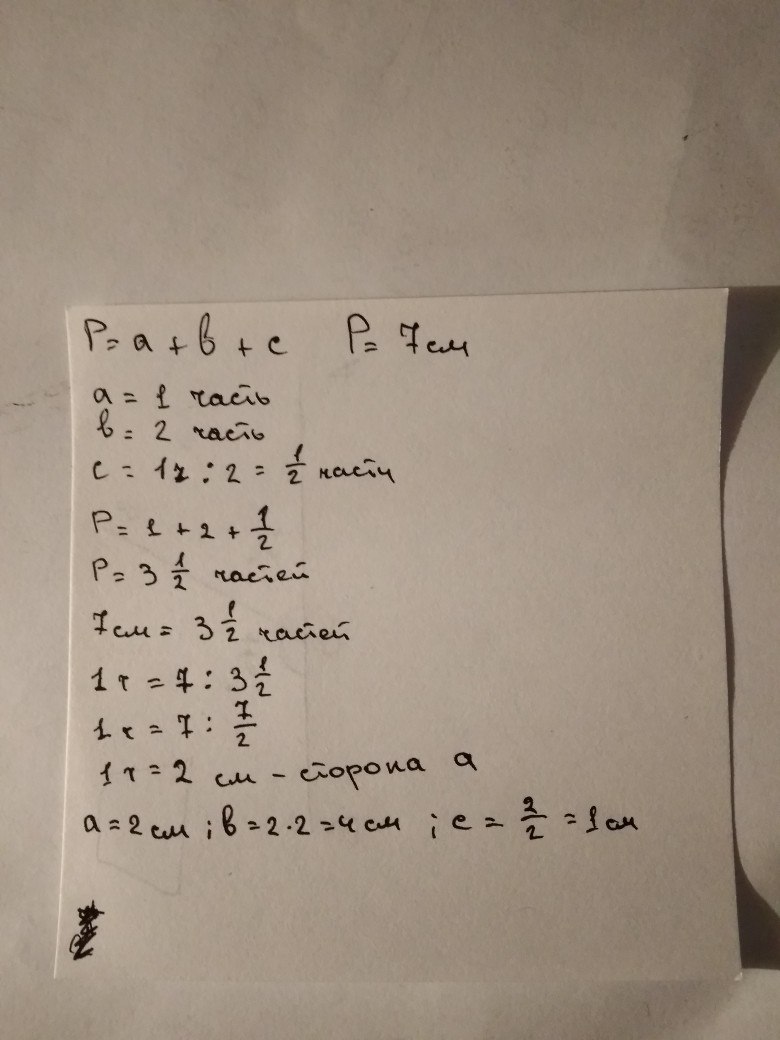 P = a + в + с P = 7 см
a = 1 часть
в = 2 часть
с = 1ч : 2 = 1/2 части
P = 1 + 2 + 1/2
P = 3 1/2 частей
7 см = 3 1/2 частей
1 ч = 7 : 3 1/2
1 ч = 7 : 7/2
1 ч = 2 см - сторона a
a = 2 см ; в = 2 · 2 = 4 см ; с = 2/2 = 1 см